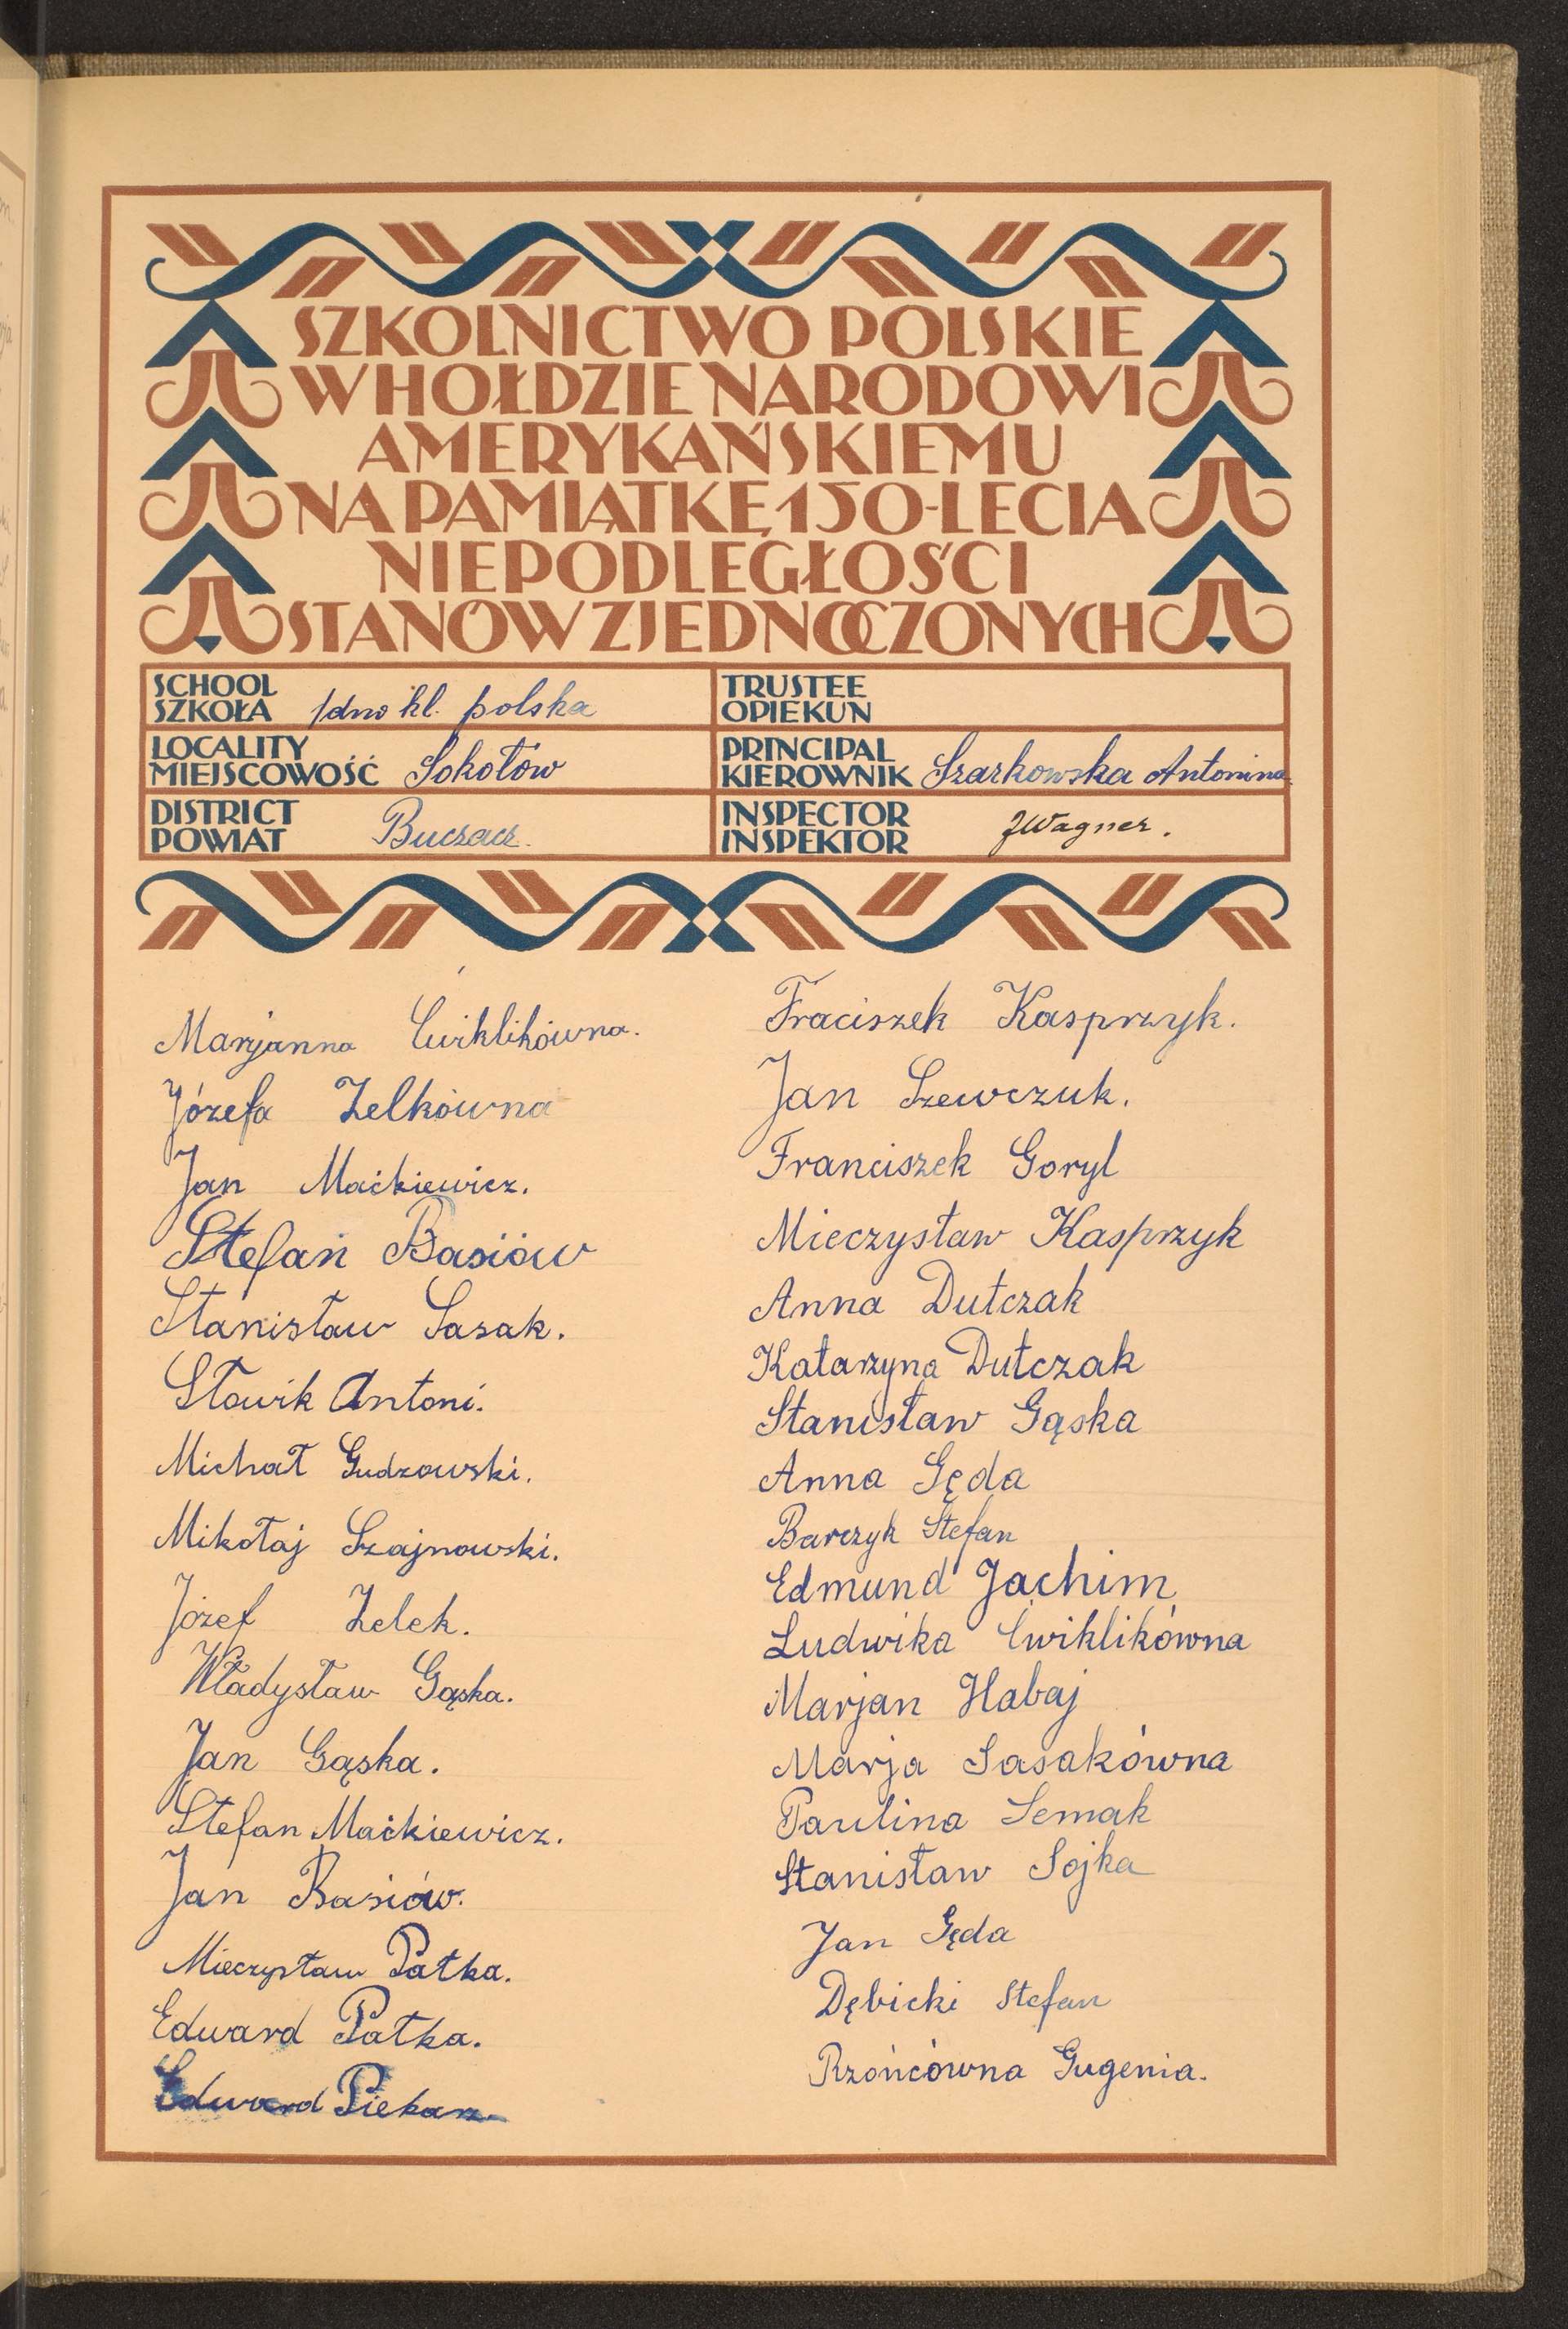 SZKOLNICTWO POLSKIE
W HOŁDZIE NARODOWI
AMERYKAŃSKIEMU
NA PAMIĄTKĘ 150-LECIA
NIEPODLEGŁOŚCI
STANÓW ZJEDNOCZONYCH
SCHOOL
SZKOŁA 1dno kl. polska
LOCALITY
MIEJSCOWOŚĆ Sokołów
DISTRICT
POWIAT Buczacz.
TRUSTEE
OPIEKUN
PRINCIPAL
KIEROWNIK Szarkowska Antonina
INSPECTOR
INSPEKTOR JWagner.
Marjanna Ćwiklikówna.
Józefa Zelkówna
Jan Maćkiewicz.
Stefan Basiów
Stanisław Sasak.
Sławik Antoni.
Michał Gudzowski.
Mikołaj Szajnowski.
Józef Zelek.
Władysław Gąska.
Jan Gąska.
Stefan Maćkiewicz.
Jan Basiów.
Mieczysław Patka.
Edward Patka.
Edward Piekarz.
Fraciszek Kasprzyk.
Jan Szewczuk.
Franciszek Goryl
Mieczysław Kasprzyk
Anna Dutczak
Katarzyna Dutczak
Stanisław Gąska
Anna Gęda
Barczyk Stefan
Edmund Jachim
Ludwika Ćwiklikówna
Marjan Habaj
Marja Sasakówna
Paulina Semak
Stanisław Sojka
Jan Gęda
Dębicki Stefan
Rzońcówna Gugenia.